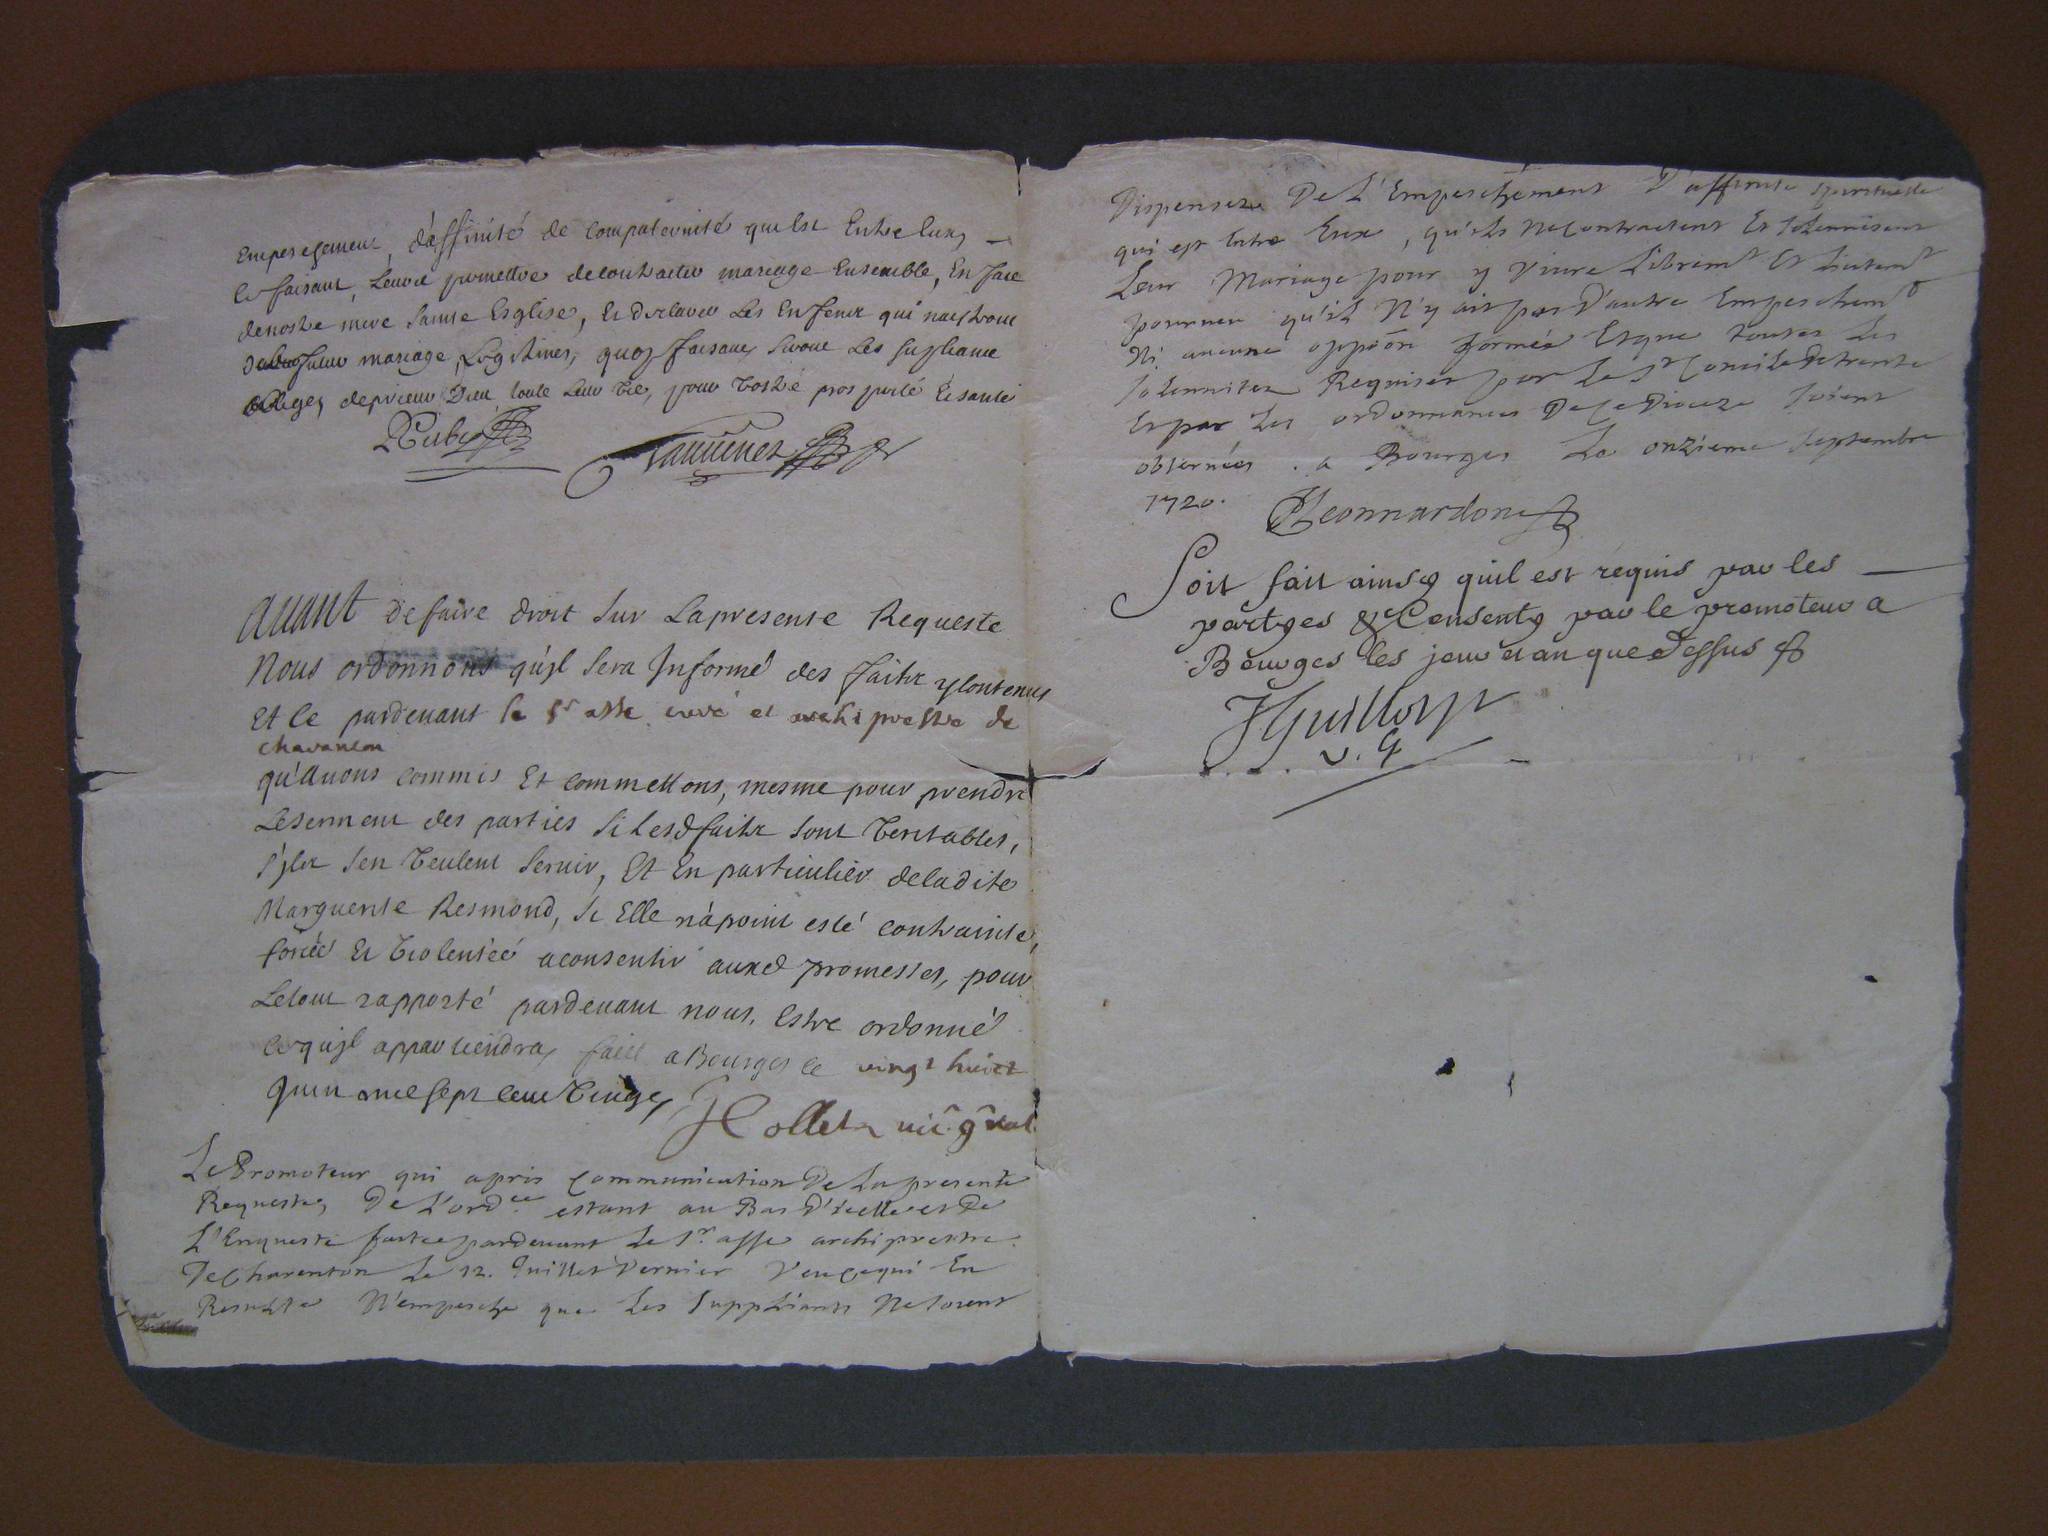 Empeschement, d'affinité de Compaternité qui Est Entre Eux,
Ce faisant, Leurs permettre de contracter mariage Ensemble, En face
de nostre mere Sainte Esglise, Et declarer Les Enfens qui naistront
futur mariage, Legitimes, quoy faisans, seront Les supliants
Obliges de prier Dieu toute Leur vie, pour vostre prosperité Et santé
avant de faire droit Sur La presente Requeste
Nous ordonnons qu'jl Sera Jnformé des faitz y Contenus
Et ce pardevant le Sr asse curé et archiprestre de
charanton
qu'avons commis Et commettons, mesme pour prendre
Le serment des parties Si Lesd faitz sont veritables,
S'jlz S'en veulent servir, Et En particulier de ladite
Marguerite Resmond, Si Elle n'a point esté contrainte,
forcée Et violentée a consentir auxd promesses, pour
Le tout rapporté pardevant nous, Estre ordonné
ce qu'jl appartiendra, fait a Bourges ce vingt huict
Juin mil sept Cent vingt,
Collet vic. g^ral
Le Promoteur qui a pris Communication De La presente
Requeste, De L'ord^ce estant au Bas D'icelle et De
L'Enqueste faitte pardevant Le Sr. asse archiprestre
De Charenton Le 12. Juillet Dernier Veu Ce qui En
Resulte N'empesche que Les Suppliants Ne soient
Dispensez De L'Empeschement D'affinité Spirituelle
qui est Entre Eux, qu'ils Ne Contractent Et Solennisent
Leur Mariage pour y vivre Librem^t Et Licitem^t
pourveu qu'il N'y ait pas D'autre Empeschem^t
Ni aucune oppōon formée Et que toutes Les
Solennitez Requises par Le S^t Concile De trente
Et par Les ordonnances De Ce Dioceze soient
observées. a Bourges Le onzieme Septembre
1720.
Leonnardon
Soit fait ainsy quil est requis par les
partyes & Consenty par le promoteur a
Bourges les jour et an que Dessus
JGuillory
V. G